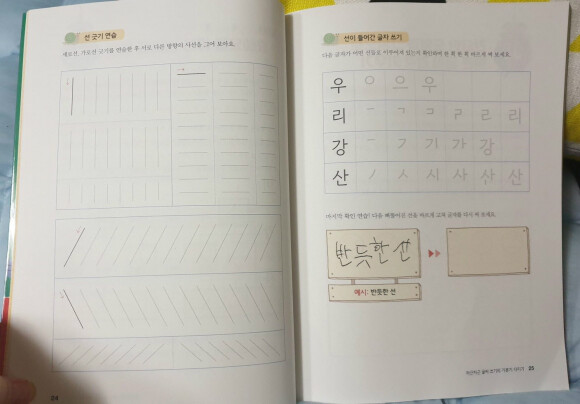 선 긋기 연습
세로선, 가로선 긋기를 연습한 후 서로 다른 방향의 사선을 그어 보아요.
24
선이 들어간 글자 쓰기
다음 글자가 어떤 선들로 이루어져 있는지 확인하며 한 획 한 획 바르게 써 보세요.
우 ㅇ 으 우
리 ㄱ ㄹ 리
강 ㄱ 기 가 강
산 ㅅ 시 사 산 산
마지막 확인 연습! 다음 삐뚤어진 선을 바르게 고쳐 글자를 다시 써 보세요.
반듯한 선
예시: 반듯한 선
25